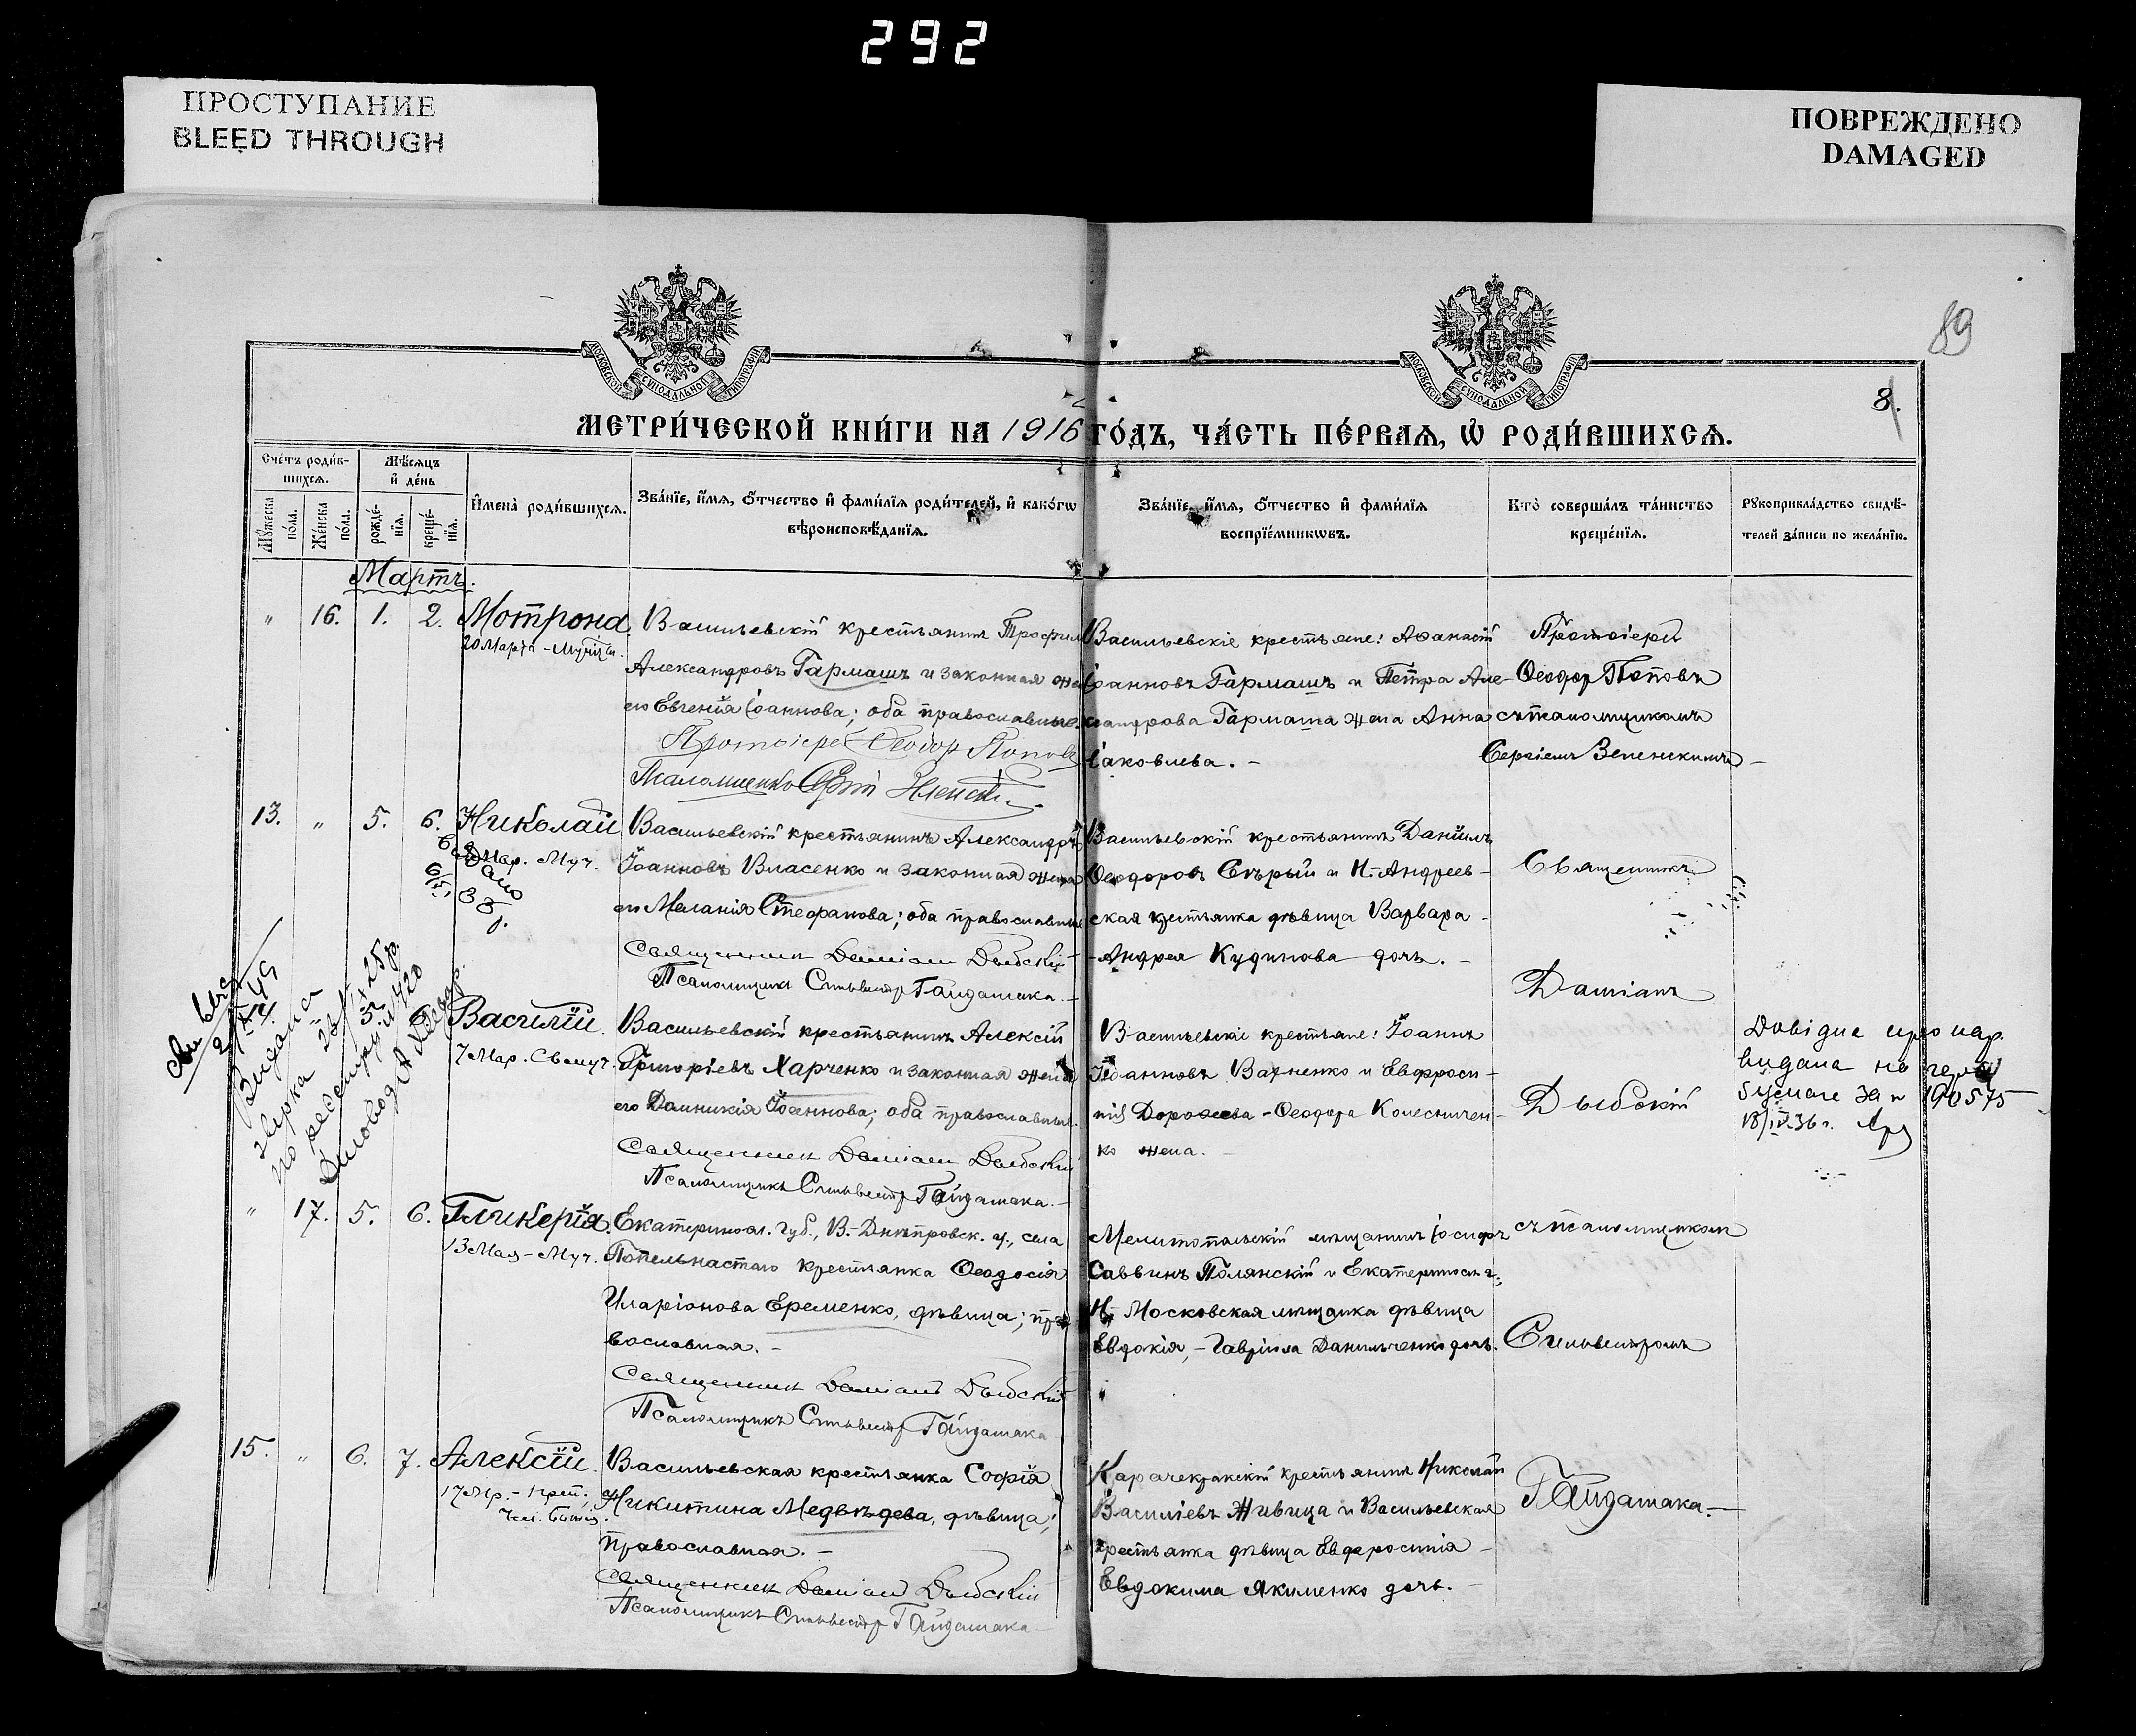 292
ПРОСТУПАНИЕ
BLEED THROUGH
ПОВРЕЖДЕНО
DAMAGED
89
8.
МОСКОВСКОЙ СУНОДАЛЬНОЙ ТИПОГРАФІИ
МОСКОВСКОЙ СУНОДАЛЬНОЙ ТИПОГРАФІИ
МЕТРИ́ЧЕСКОЙ КНИ́ГИ НА 1916 ГО́ДЪ, ЧА́СТЬ ПЕ́РВАѦ, Ѡ҆ РОДИ́ВШИХСѦ.
Сче́тъ роди́в-
шихсѧ.
Мѣ́сѧцъ
и҆ де́нь
Мꙋ́жеска по́ла.
Же́нска по́ла.
рожде́-нїѧ.
креще́-нїѧ.
И҆мена̀ роди́вшихсѧ.
Зва́нїе, и҆́мѧ, ѻ҆́тчество и҆ фами́лїѧ роди́телей, и҆ како́гѡ
вѣроисповѣ́данїѧ.
Зва́нїе, и҆́мѧ, ѻ҆́тчество и҆ фами́лїѧ
воспрїе́мникѡвъ.
Кто̀ соверша́лъ та́инство
креще́нїѧ.
Рꙋкоприкла́дство свидѣ́-
телей за́писи по жела́нїю.
Мартъ.
" 16. 1. 2. Мотрона
20 Марта - Муч-ца.
Васильевскій крестьянинъ Трофим
Александровъ Гармашъ и законная жена
его Евгенія Іоаннова; оба православные.
Протоіерей Ѳеодор Попов
Васильевскіе крестьяне: Аѳанасій
Іоанновъ Гармашъ и Петра Але-
ксандрова Гармаша жена Анна
Іаковлева. -
Протоіерей
Ѳеодор Поповъ
съ псаломщикомъ
Сергіемъ
13. " 5. 6. Николай
9 Мар. Муч.
Васильевскій крестьянинъ Александръ
Іоанновъ Власенко и законная жена
его Меланія Стефанова; оба православные
Священник Даміан Дыбскій
Псаломщикъ Сильвестр Гайдашака. -
Васильевскій крестьянинъ Даніилъ
Ѳеодоровъ Сѣрый и Н.-Андреев-
ская крестьянка дѣвица Варвара -
- Андрея Кудинова дочь. -
Священникъ
Даміанъ
Видано
Василій.
7 Мар. Св. муч.
Васильевскій крестьянинъ Алексій
Григоріевъ Харченко и законная жена
его Домникія Іоаннова; оба православные.
Священник Даміан Дыбскій
Псаломщикъ Сильвестр Гайдашака. -
Васильевскіе крестьяне: Іоаннъ
Іоанновъ Вахненко и Евфроси-
нія Дороѳеева - Ѳеодора Колесничен-
ко жена. -
Дыбскій
Довідка про нар.
видана на
за № 190575
18/IV-36 г.
" 17. 5. 6. Гликерія.
13 Мая - Муч.
Екатеринosл. губ., В.-Днѣпровск. у., села
Попельнастаго крестьянка Ѳеодосія
Иларіонова Еременко, дѣвица; пра-
вославная. -
Священник Даміан Дыбскій
Псаломщикъ Сильвестр Гайдашака
Мелитопольскій мѣщанинъ Іосифъ
Саввинъ Полянскій и Екатеринosл. г.,
Н-Московская мѣщанка дѣвица
Евдокія, - Гавріила Данильченко дочь.
съ псаломщикомъ
Сильвестромъ
15. " 6. 7. Алексій.
17 Мр. - Преп.;
Васильевская крестьянка Софія
Никитина Медвѣдева, дѣвица;
православная. -
Священник Даміан Дыбскій
Псаломщикъ Сильвестр Гайдашака -
Карачекракскій крестьянинъ Николай
Василіевъ Живица и Васильевская
крестьянка дѣвица Евфросинія -
Евдокима Якименко дочь. -
Гайдашака. -